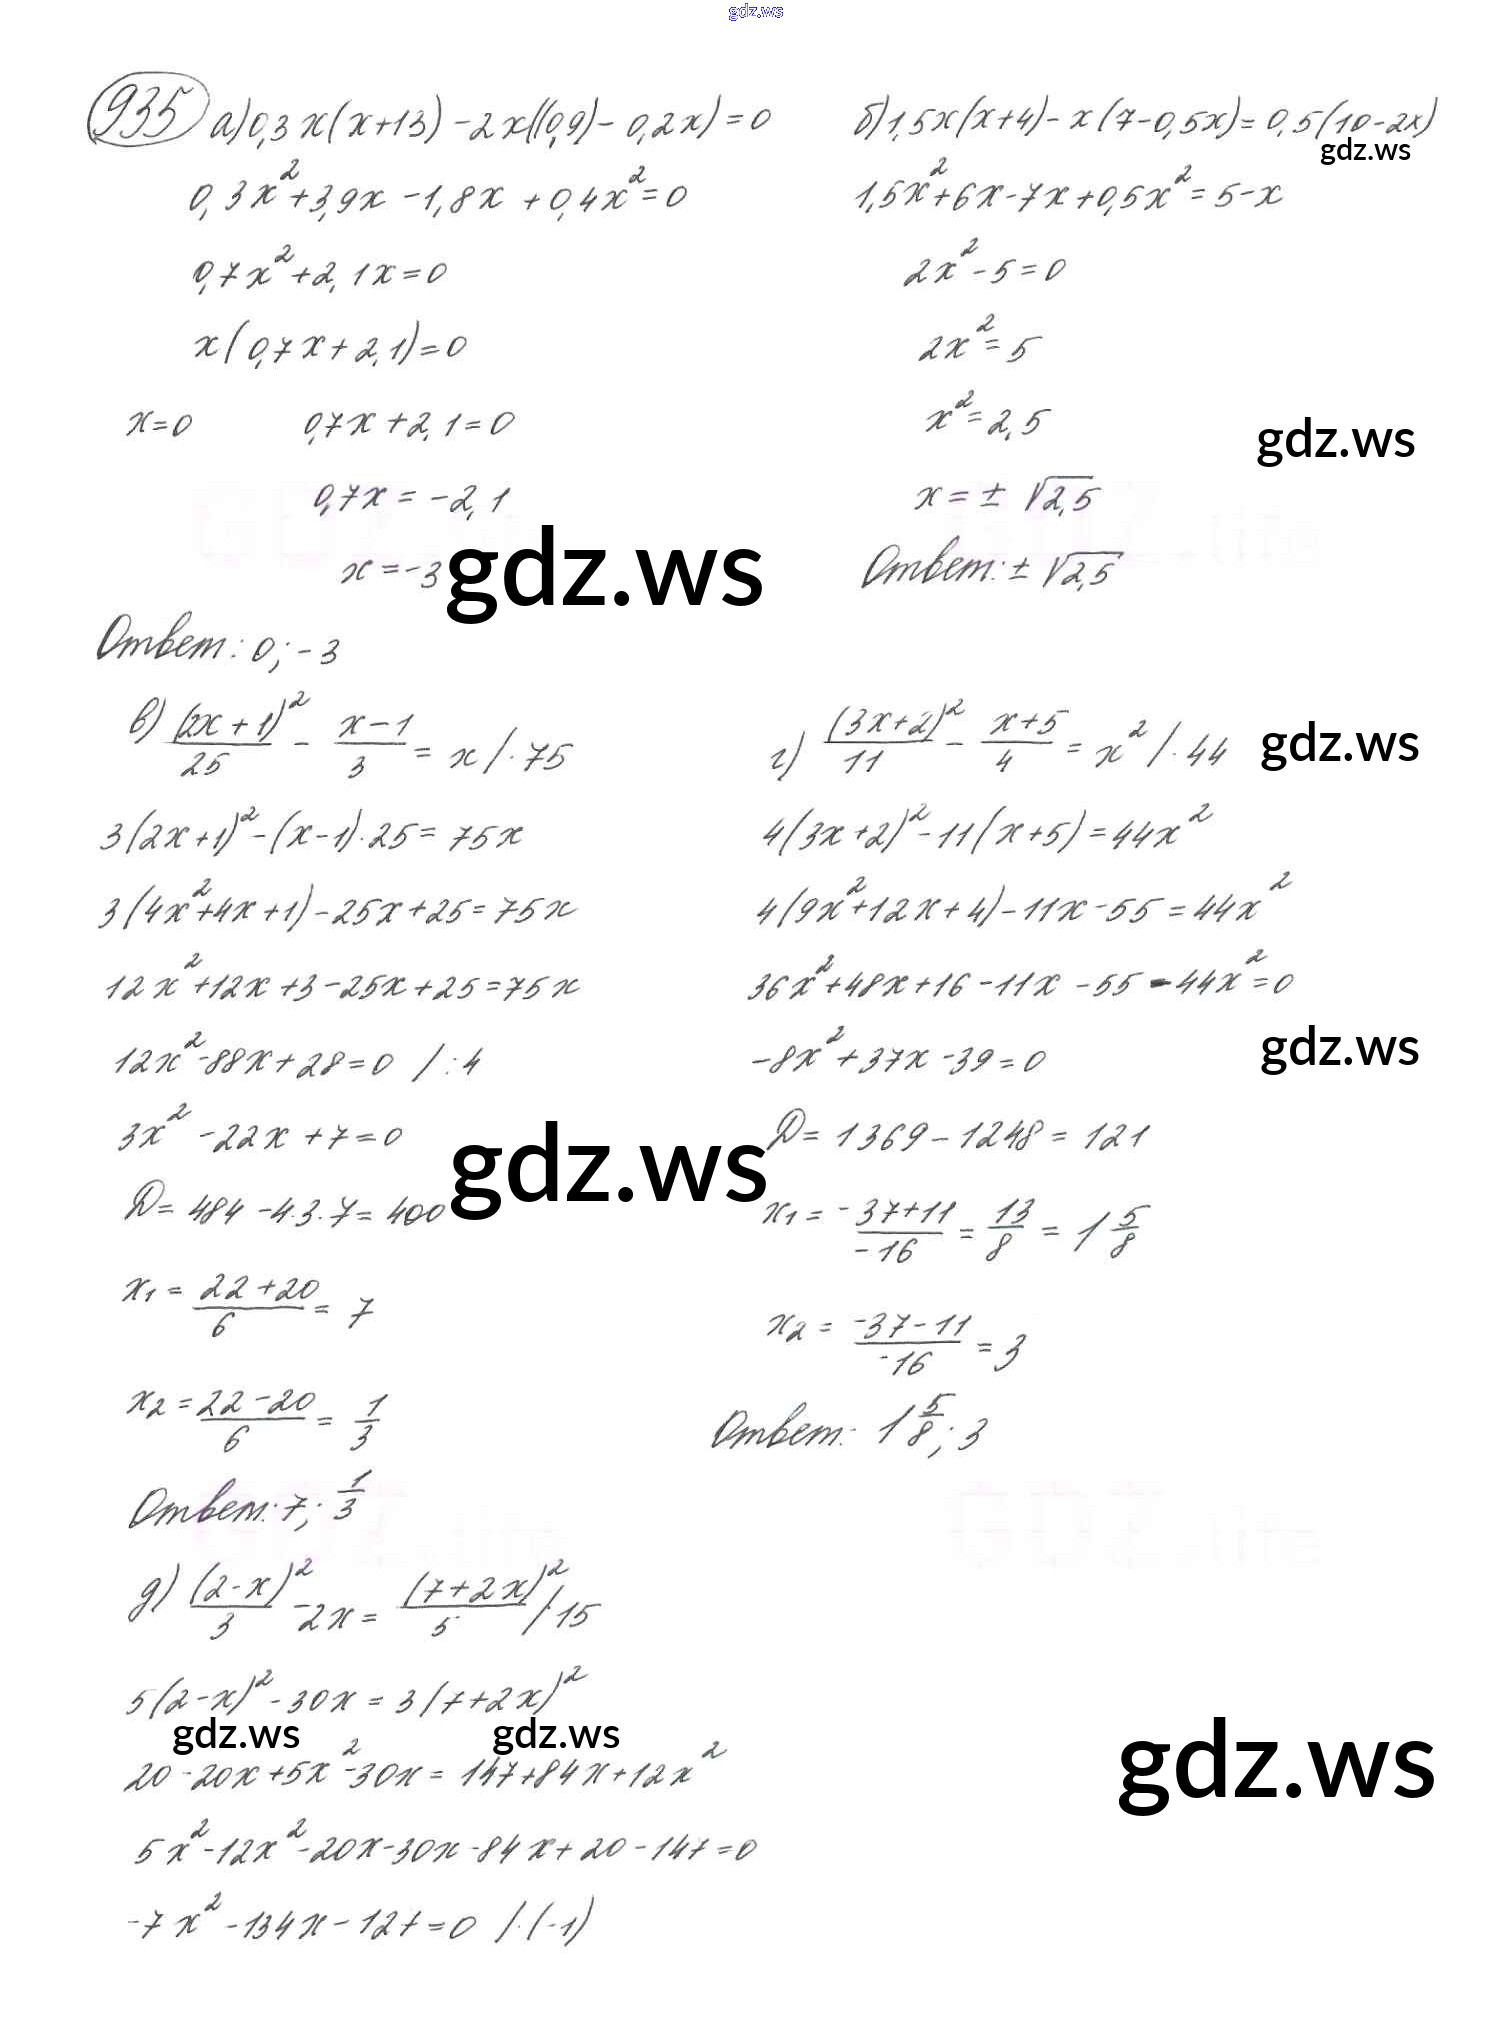 gdz.ws
935 а) 0,3x(x+13) - 2x((0,9) - 0,2x) = 0
0,3x² + 3,9x - 1,8x + 0,4x² = 0
0,7x² + 2,1x = 0
x(0,7x + 2,1) = 0
x = 0 0,7x + 2,1 = 0
0,7x = -2,1
x = -3
Ответ: 0; -3
б) 1,5x(x+4) - x(7-0,5x) = 0,5(10-2x)
gdz.ws
1,5x² + 6x - 7x + 0,5x² = 5 - x
2x² - 5 = 0
2x² = 5
x² = 2,5
gdz.ws
x = ± √2,5
gdz.ws
Ответ: ± √2,5
в) (2x+1)²/25 - (x-1)/3 = x /·75
3(2x+1)² - (x-1)·25 = 75x
3(4x²+4x+1) - 25x + 25 = 75x
12x² + 12x + 3 - 25x + 25 = 75x
12x² - 88x + 28 = 0 /:4
3x² - 22x + 7 = 0
D = 484 - 4·3·7 = 400
gdz.ws
x₁ = (22+20)/6 = 7
x₂ = (22-20)/6 = 1/3
Ответ: 7; 1/3
г) (3x+2)²/11 - (x+5)/4 = x² /·44
gdz.ws
4(3x+2)² - 11(x+5) = 44x²
4(9x²+12x+4) - 11x - 55 = 44x²
36x² + 48x + 16 - 11x - 55 - 44x² = 0
-8x² + 37x - 39 = 0
gdz.ws
D = 1369 - 1248 = 121
x₁ = (-37+11)/-16 = 13/8 = 1 5/8
x₂ = (-37-11)/-16 = 3
Ответ: 1 5/8; 3
д) (2-x)²/3 - 2x = (7+2x)²/5 /·15
5(2-x)² - 30x = 3(7+2x)²
gdz.ws gdz.ws
20 - 20x + 5x² - 30x = 147 + 84x + 12x²
gdz.ws
5x² - 12x² - 20x - 30x - 84x + 20 - 147 = 0
-7x² - 134x - 127 = 0 /·(-1)